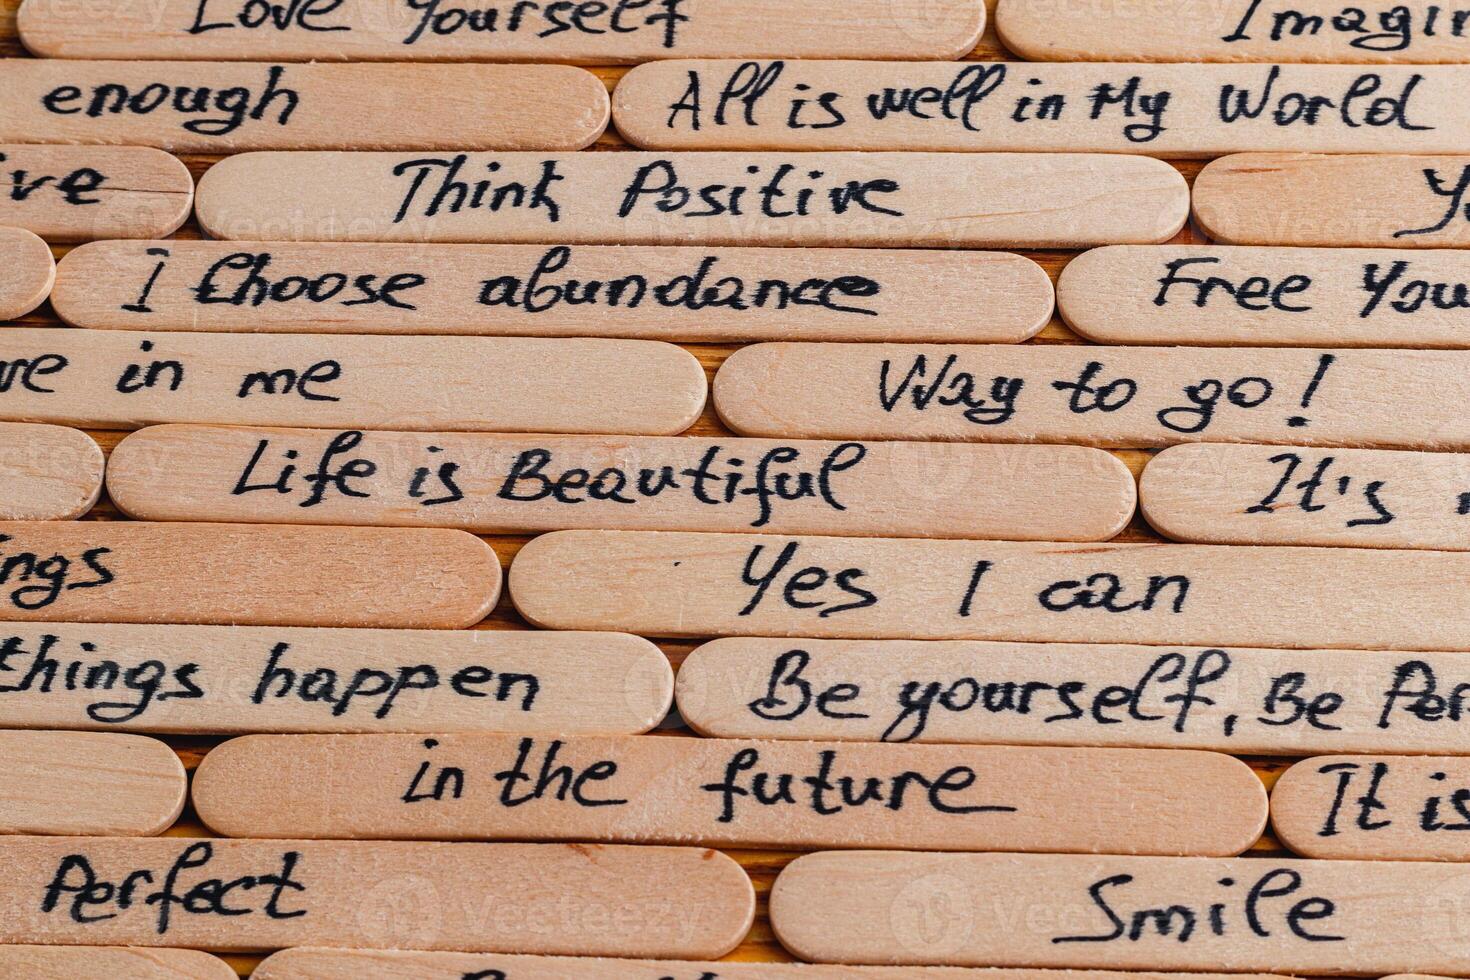 Love Yourself Imagin
enough All is well in My World
ive Think Positive Yo
I Choose abundance Free You
re in me Way to go!
Life is Beautiful It's
ngs Yes I can
things happen Be yourself, Be Per
in the future It is
Perfect Smile